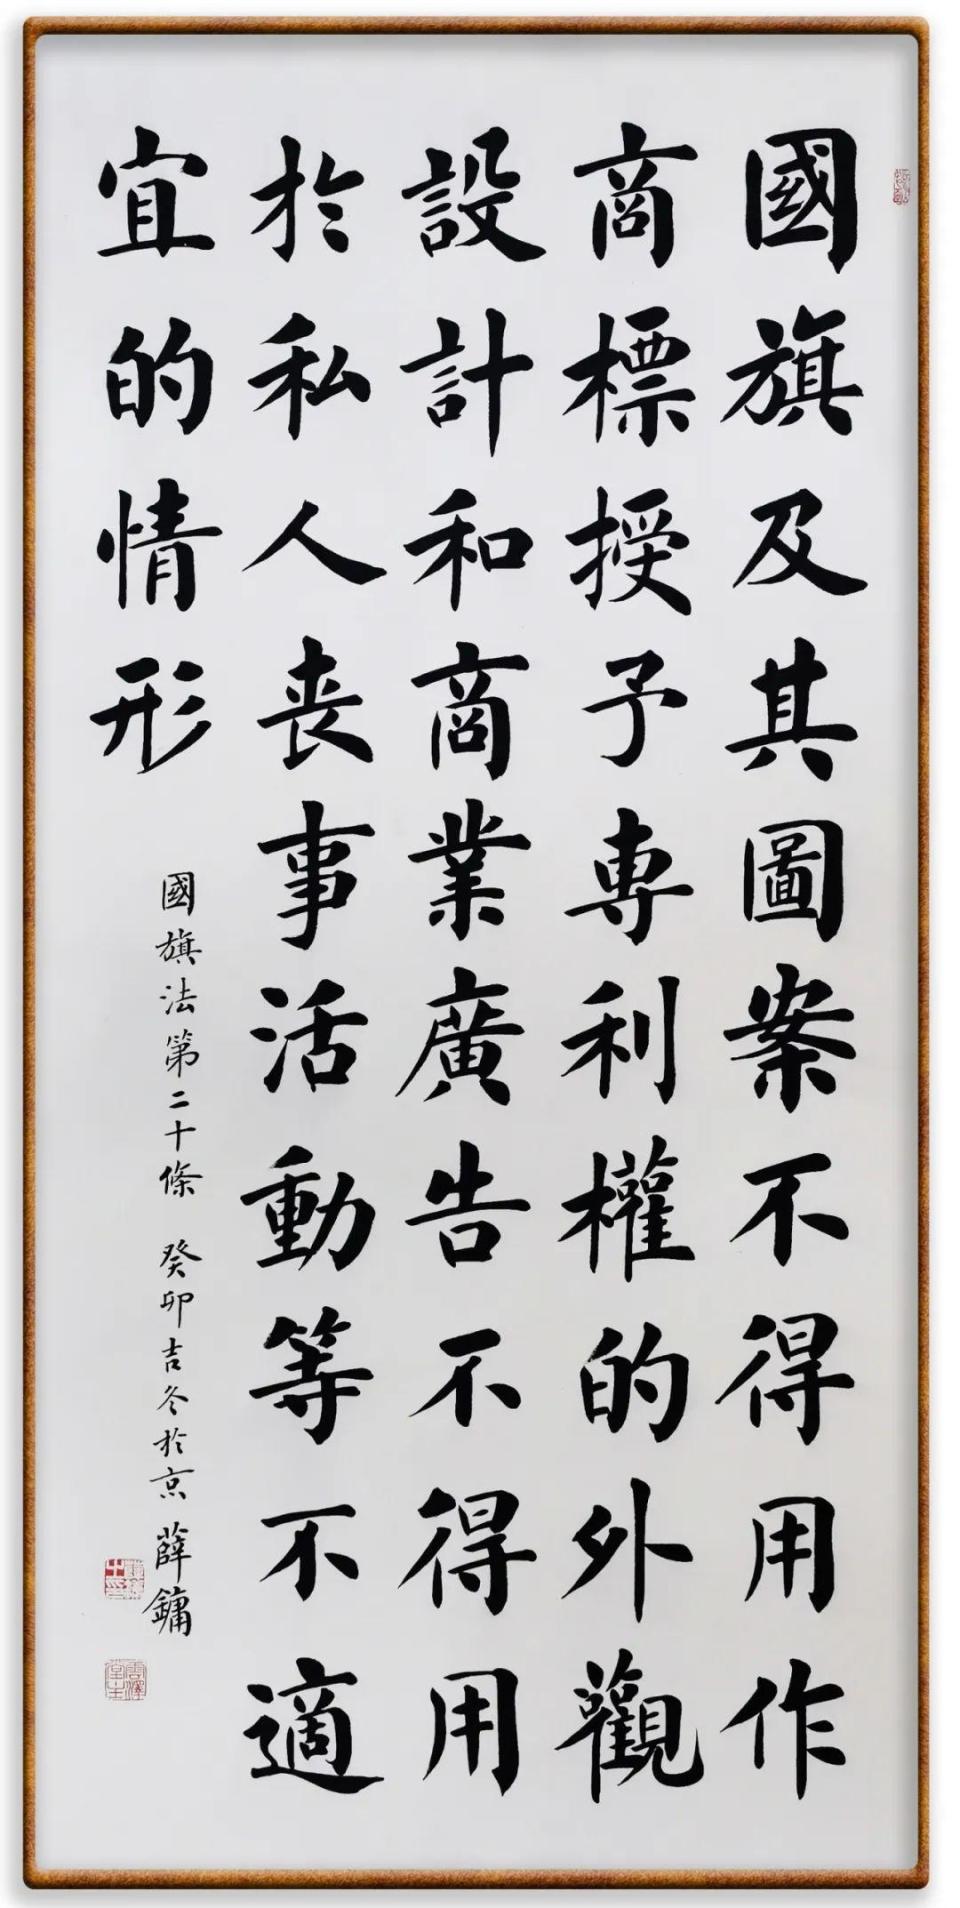 國旗及其圖案不得用作
商標授予専利權的外觀
設計和商業廣告不得用
於私人丧事活動等不適
宜的情形
國旗法第二十條 癸卯吉冬於京 薛鏞